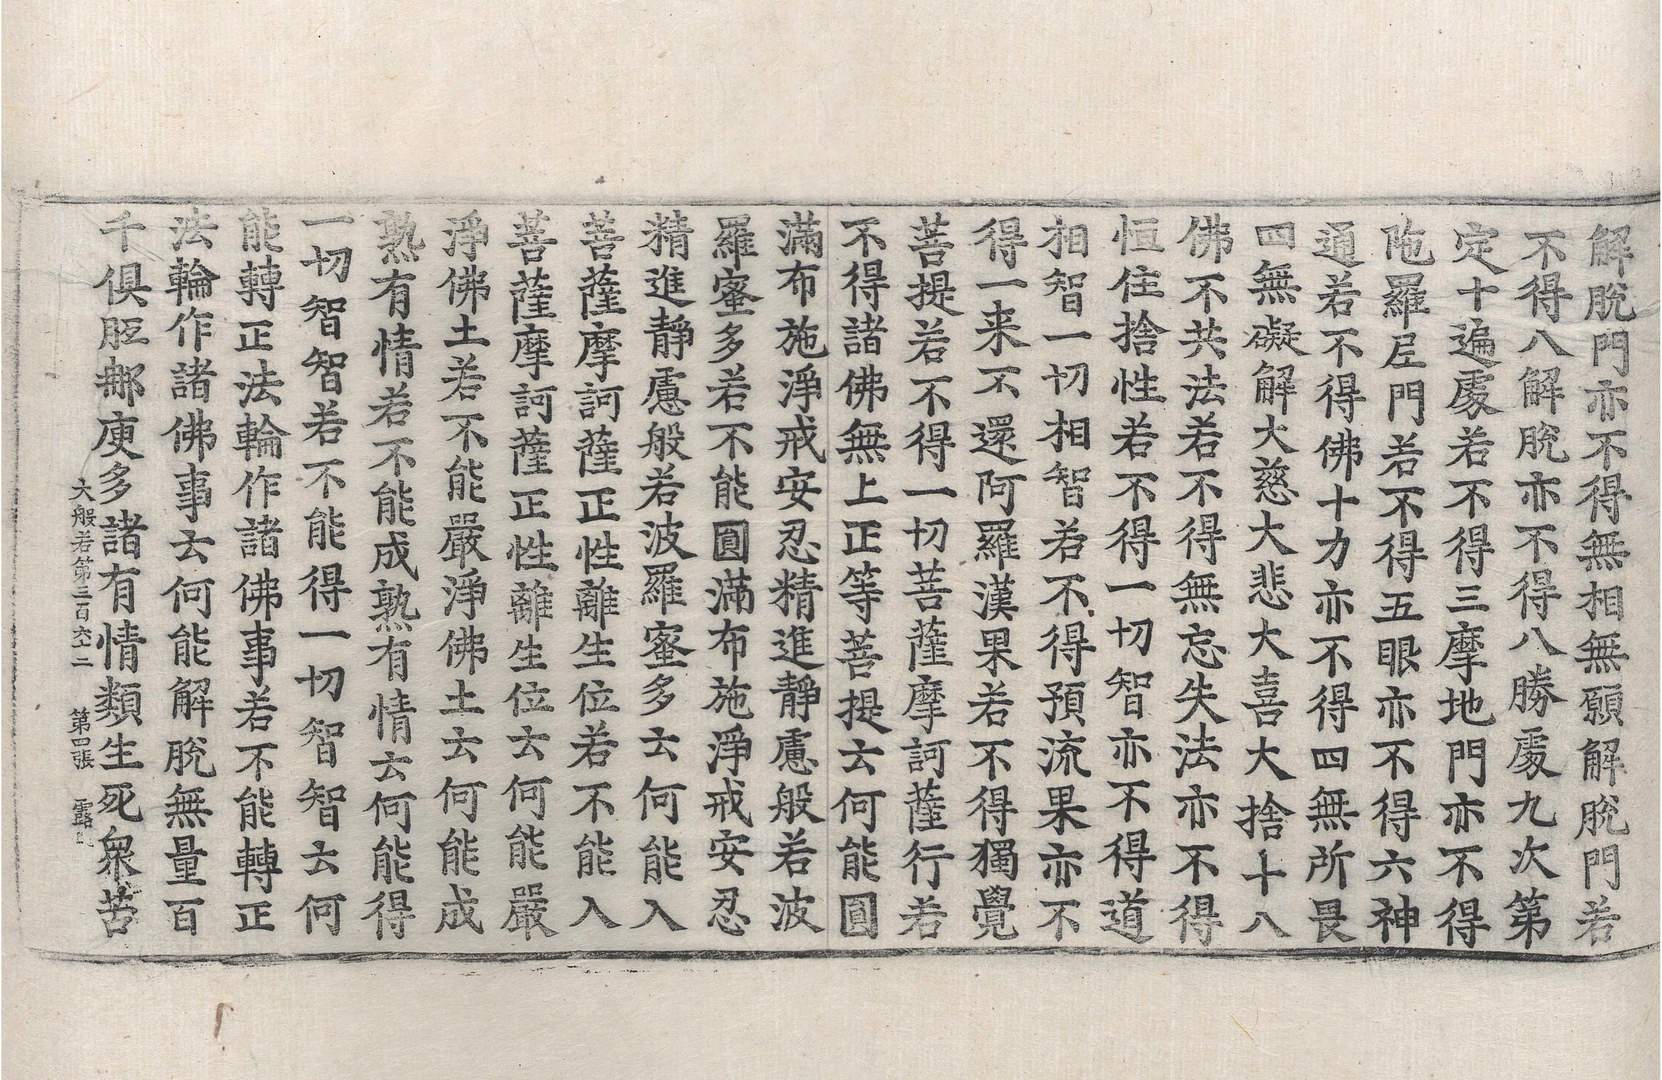 解脫門亦不得無相無願解脫門若
不得八解脫亦不得八勝處九次第
定十遍處若不得三摩地門亦不得
陁羅尼門若不得五眼亦不得六神
通若不得佛十力亦不得四無所畏
四無礙解大慈大悲大喜大捨十八
佛不共法若不得無忘失法亦不得
恒住捨性若不得一切智亦不得道
相智一切相智若不得預流果亦不
得一来不還阿羅漢果若不得獨覺
菩提若不得一切菩薩摩訶薩行若
不得諸佛無上正等菩提云何能圓
滿布施淨戒安忍精進靜慮般若波
羅蜜多若不能圓滿布施淨戒安忍
精進靜慮般若波羅蜜多云何能入
菩薩摩訶薩正性離生位若不能入
菩薩摩訶薩正性離生位云何能嚴
淨佛土若不能嚴淨佛土云何能成
熟有情若不能成熟有情云何能得
一切智智若不能得一切智智云何
能轉正法輪作諸佛事若不能轉正
法輪作諸佛事云何能解脫無量百
千俱胝那庾多諸有情類生死衆苦
大般若第三百六二 第四張 露